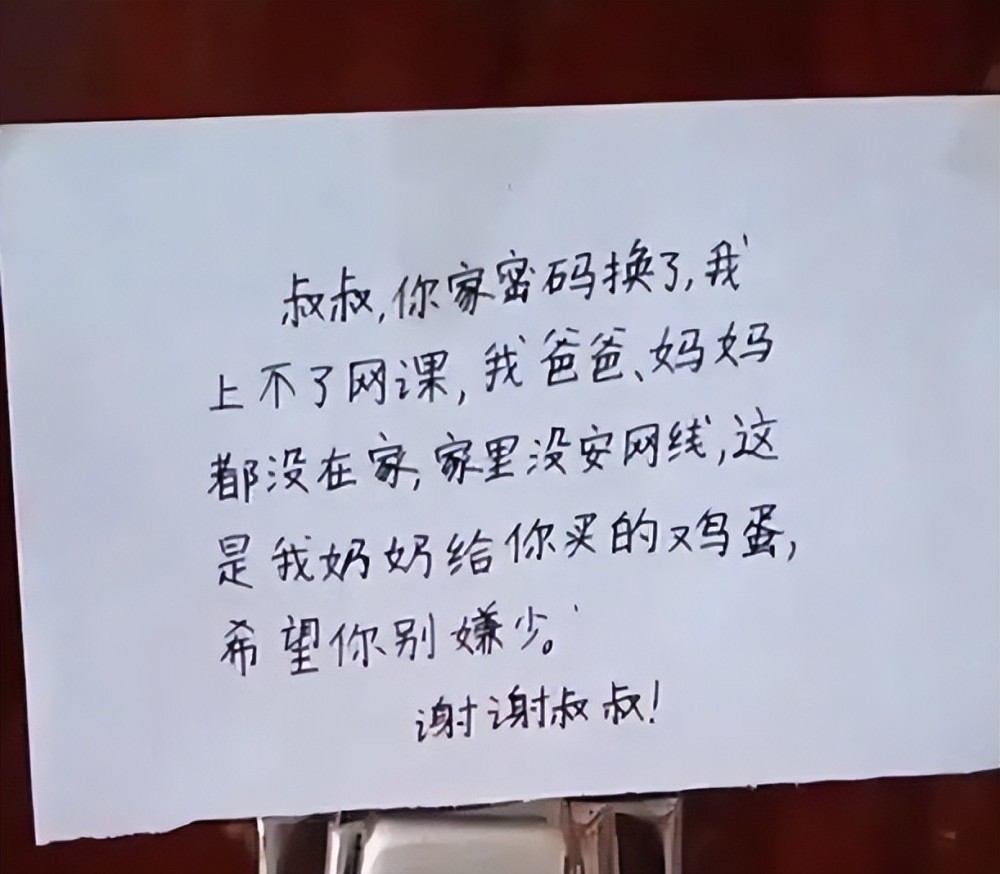 叔叔,你家密码换了,我
上不了网课,我爸爸、妈妈
都没在家,家里没安网线,这
是我奶奶给你买的鸡蛋,
希望你别嫌少。
谢谢叔叔!